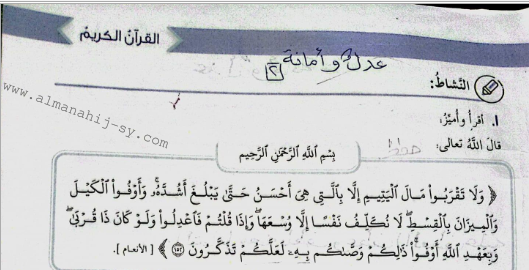 القرآن الكريم
عدل وأمانة
٢
النشاط:
www.almanahij-sy.com
١. أقرأ وأميّز:
قال اللّه تعالى:
بِسْمِ اللَّهِ الرَّحْمَٰنِ الرَّحِيمِ
﴿ وَلَا تَقْرَبُوا۟ مَالَ ٱلْيَتِيمِ إِلَّا بِٱلَّتِى هِىَ أَحْسَنُ حَتَّىٰ يَبْلُغَ أَشُدَّهُۥ ۖ وَأَوْفُوا۟ ٱلْكَيْلَ
وَٱلْمِيزَانَ بِٱلْقِسْطِ ۖ لَا نُكَلِّفُ نَفْسًا إِلَّا وُسْعَهَا ۖ وَإِذَا قُلْتُمْ فَٱعْدِلُوا۟ وَلَوْ كَانَ ذَا قُرْبَىٰ ۖ
وَبِعَهْدِ ٱللَّهِ أَوْفُوا۟ ۚ ذَٰلِكُمْ وَصَّىٰكُم بِهِۦ لَعَلَّكُمْ تَذَكَّرُونَ ١٥٢ ﴾ [الأنعام].